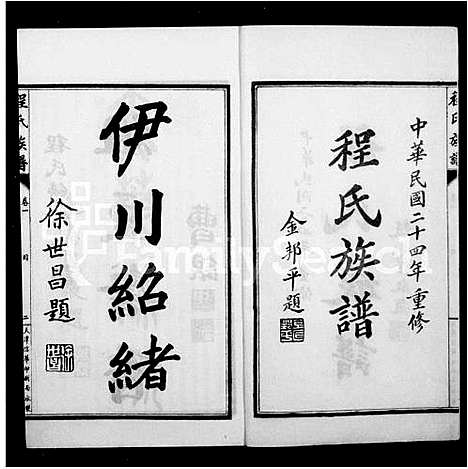 中華民國二十四年重修
程氏族譜
金邦平題
程氏族譜
伊川紹緒
徐世昌題
程氏族譜
卷一
FamilySearch